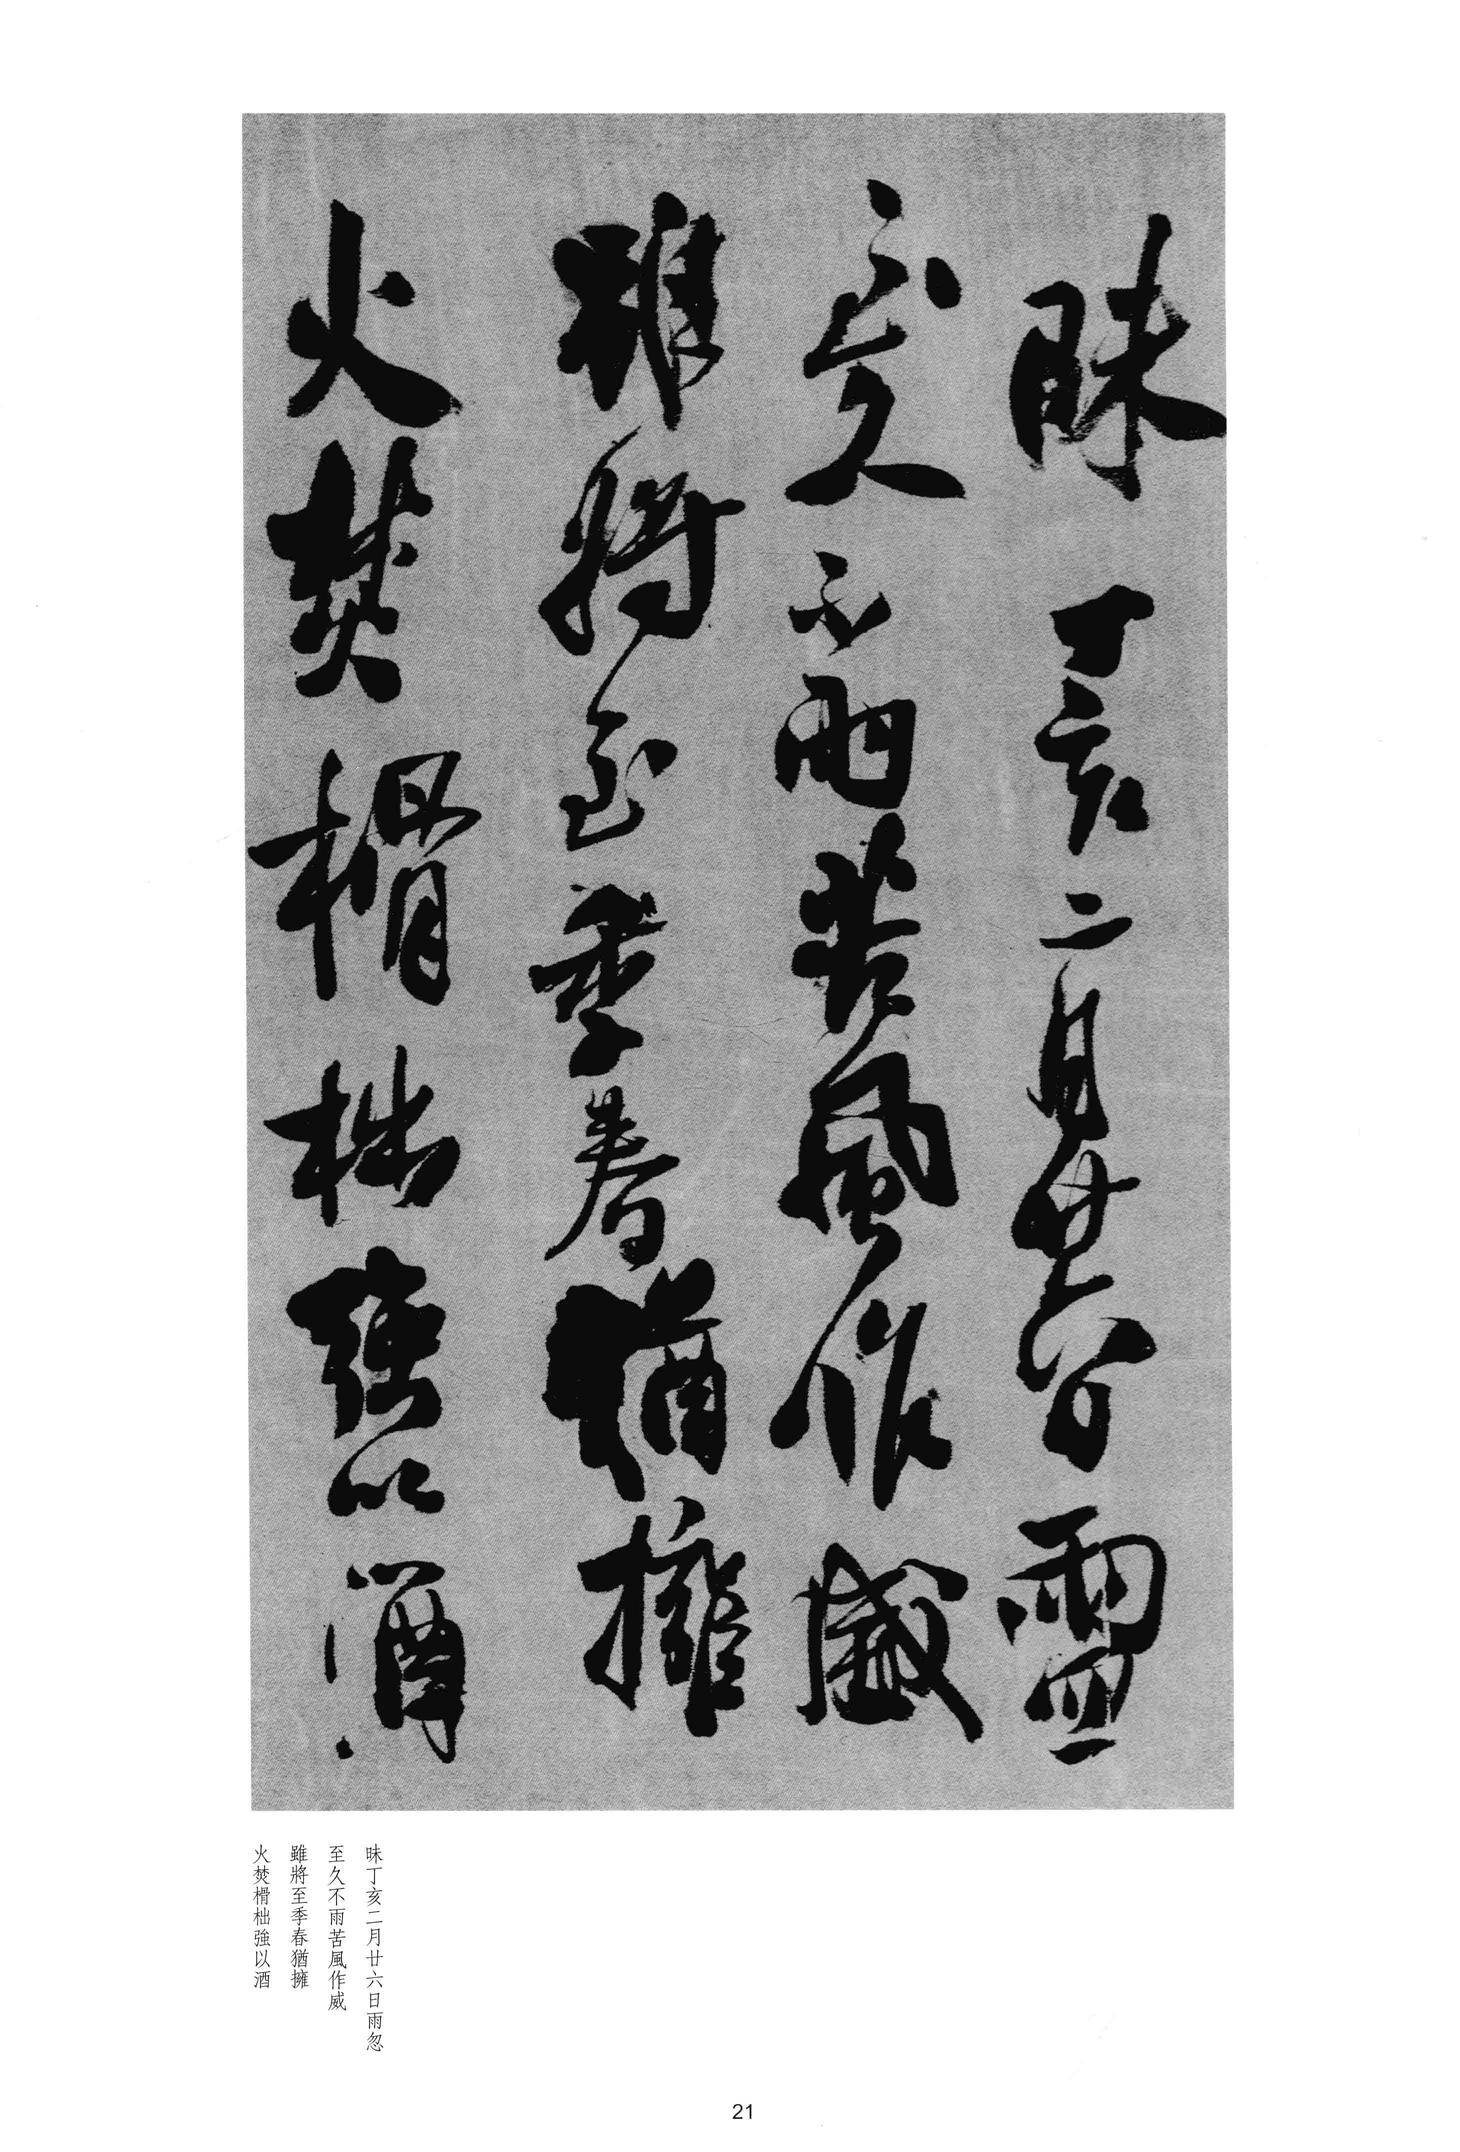 昧丁亥二月廿六日
至久不雨苦風作威
雖將至季春猶擁
火焚榾柮強以酒
昧丁亥二月廿六日雨忽
至久不雨苦風作威
雖將至季春猶擁
火焚榾柮強以酒
21